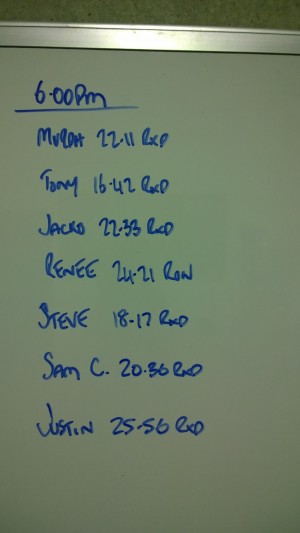 6.00pm
MURPH 22.11 RXD
Tony 16.42 RXD
JACKO 22.33 RXD
RENEE 24.21
STEVE 18.17 RXD
SAM C. 20.36 RXD
JUSTIN 25.56 RXD